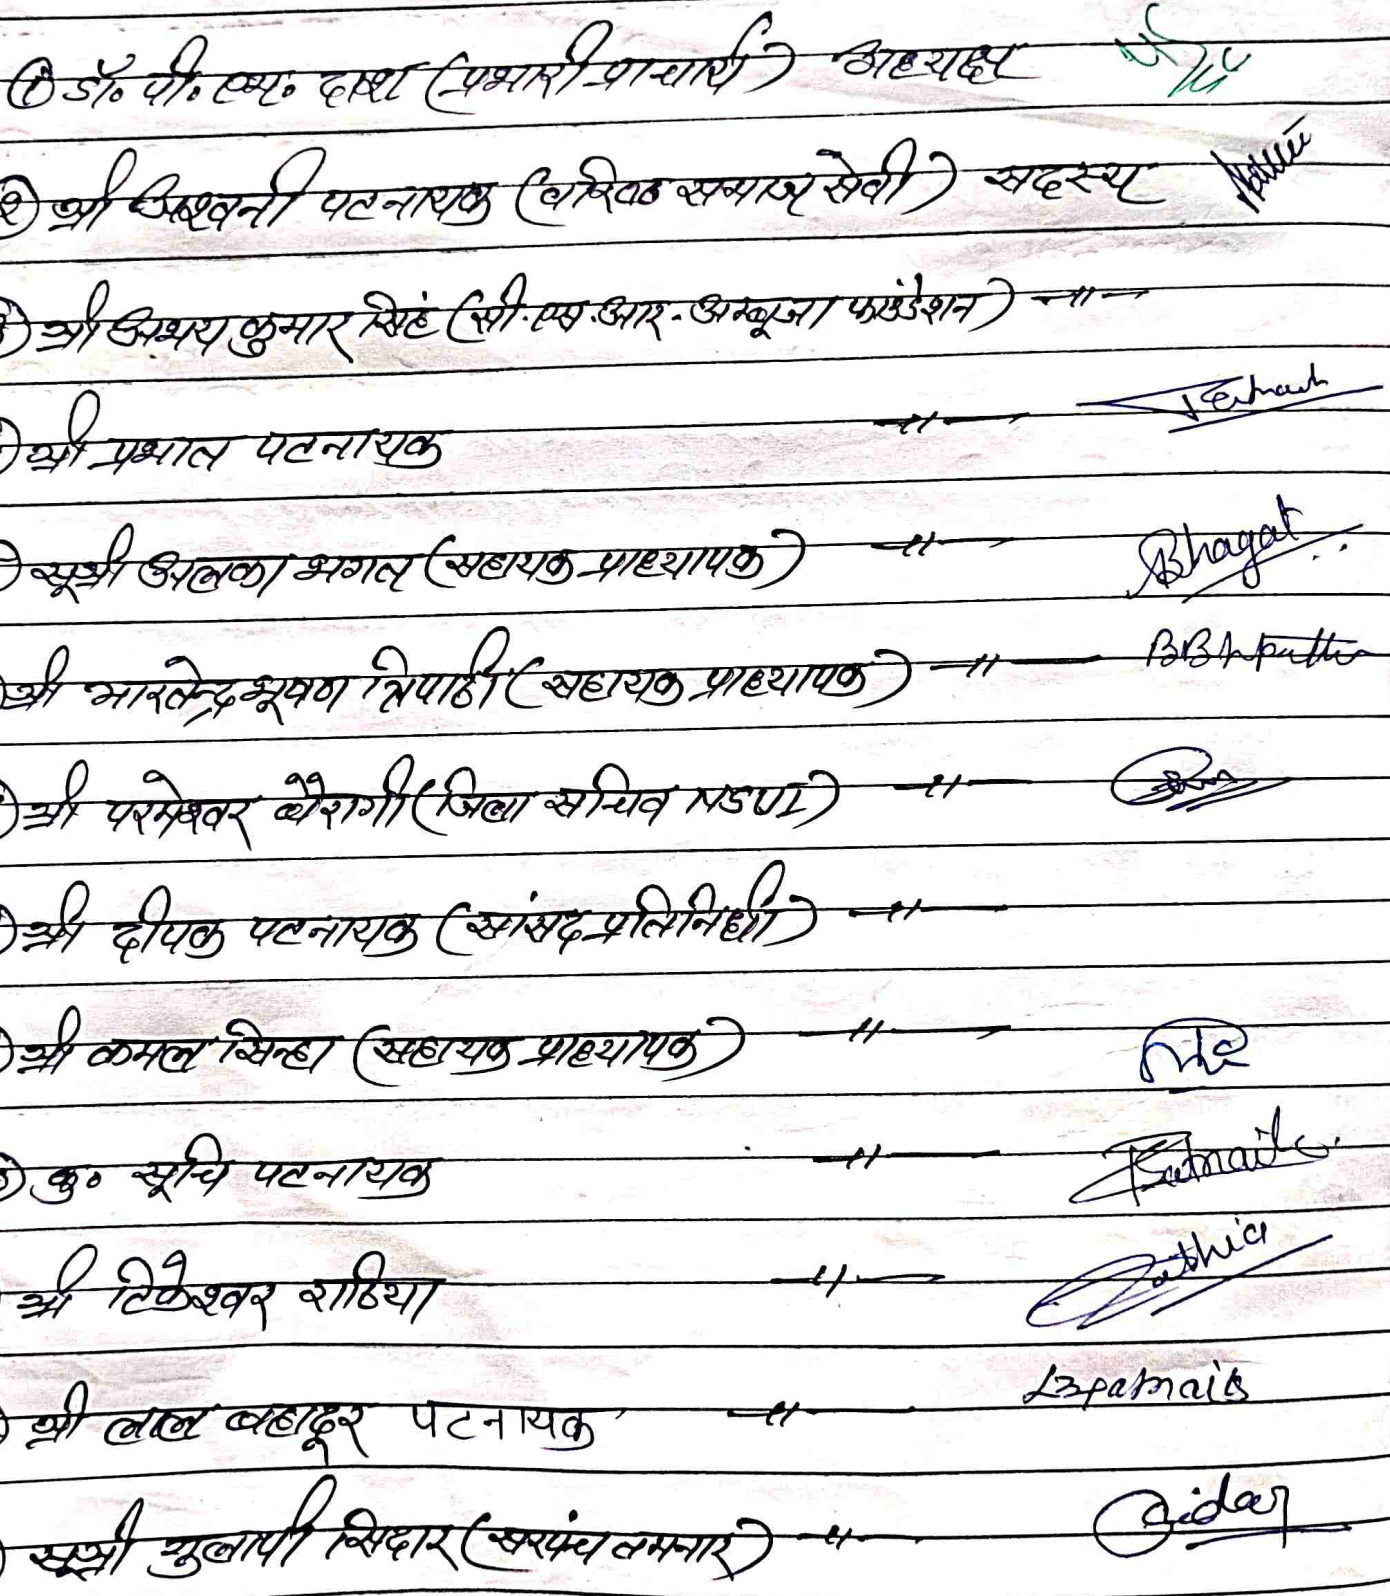 ① डॉ. पी. एम. दाश (प्रभारी प्राचार्य) अध्यक्ष
② श्री अश्वनी पटनायक (वरिष्ठ समाज सेवी) सदस्य
श्री अभय कुमार सिहं (सी.एस.आर. अम्बूजा फाउंडेशन) —〃—
श्री प्रभात पटनायक —〃—
सूश्री अलका भगत (सहायक प्राध्यापक) —〃— ABhagat
श्री भारतेन्द्र भूषण त्रिपाठी (सहायक प्राध्यापक) —〃—
श्री परमेश्वर बैरागी (जिला सचिव NSUI) —〃—
श्री दीपक पटनायक (सांसद प्रतिनिधी) —〃—
श्री कमल सिन्हा (सहायक प्राध्यापक) —〃—
कु. सूचि पटनायक —〃—
श्री टिकेश्वर राठिया —〃— Rathia
श्री लाल बहादूर पटनायक —〃— LBpatnaik
सूश्री गुलापी सिदार (सरपंच तमनार) —〃— Sidar